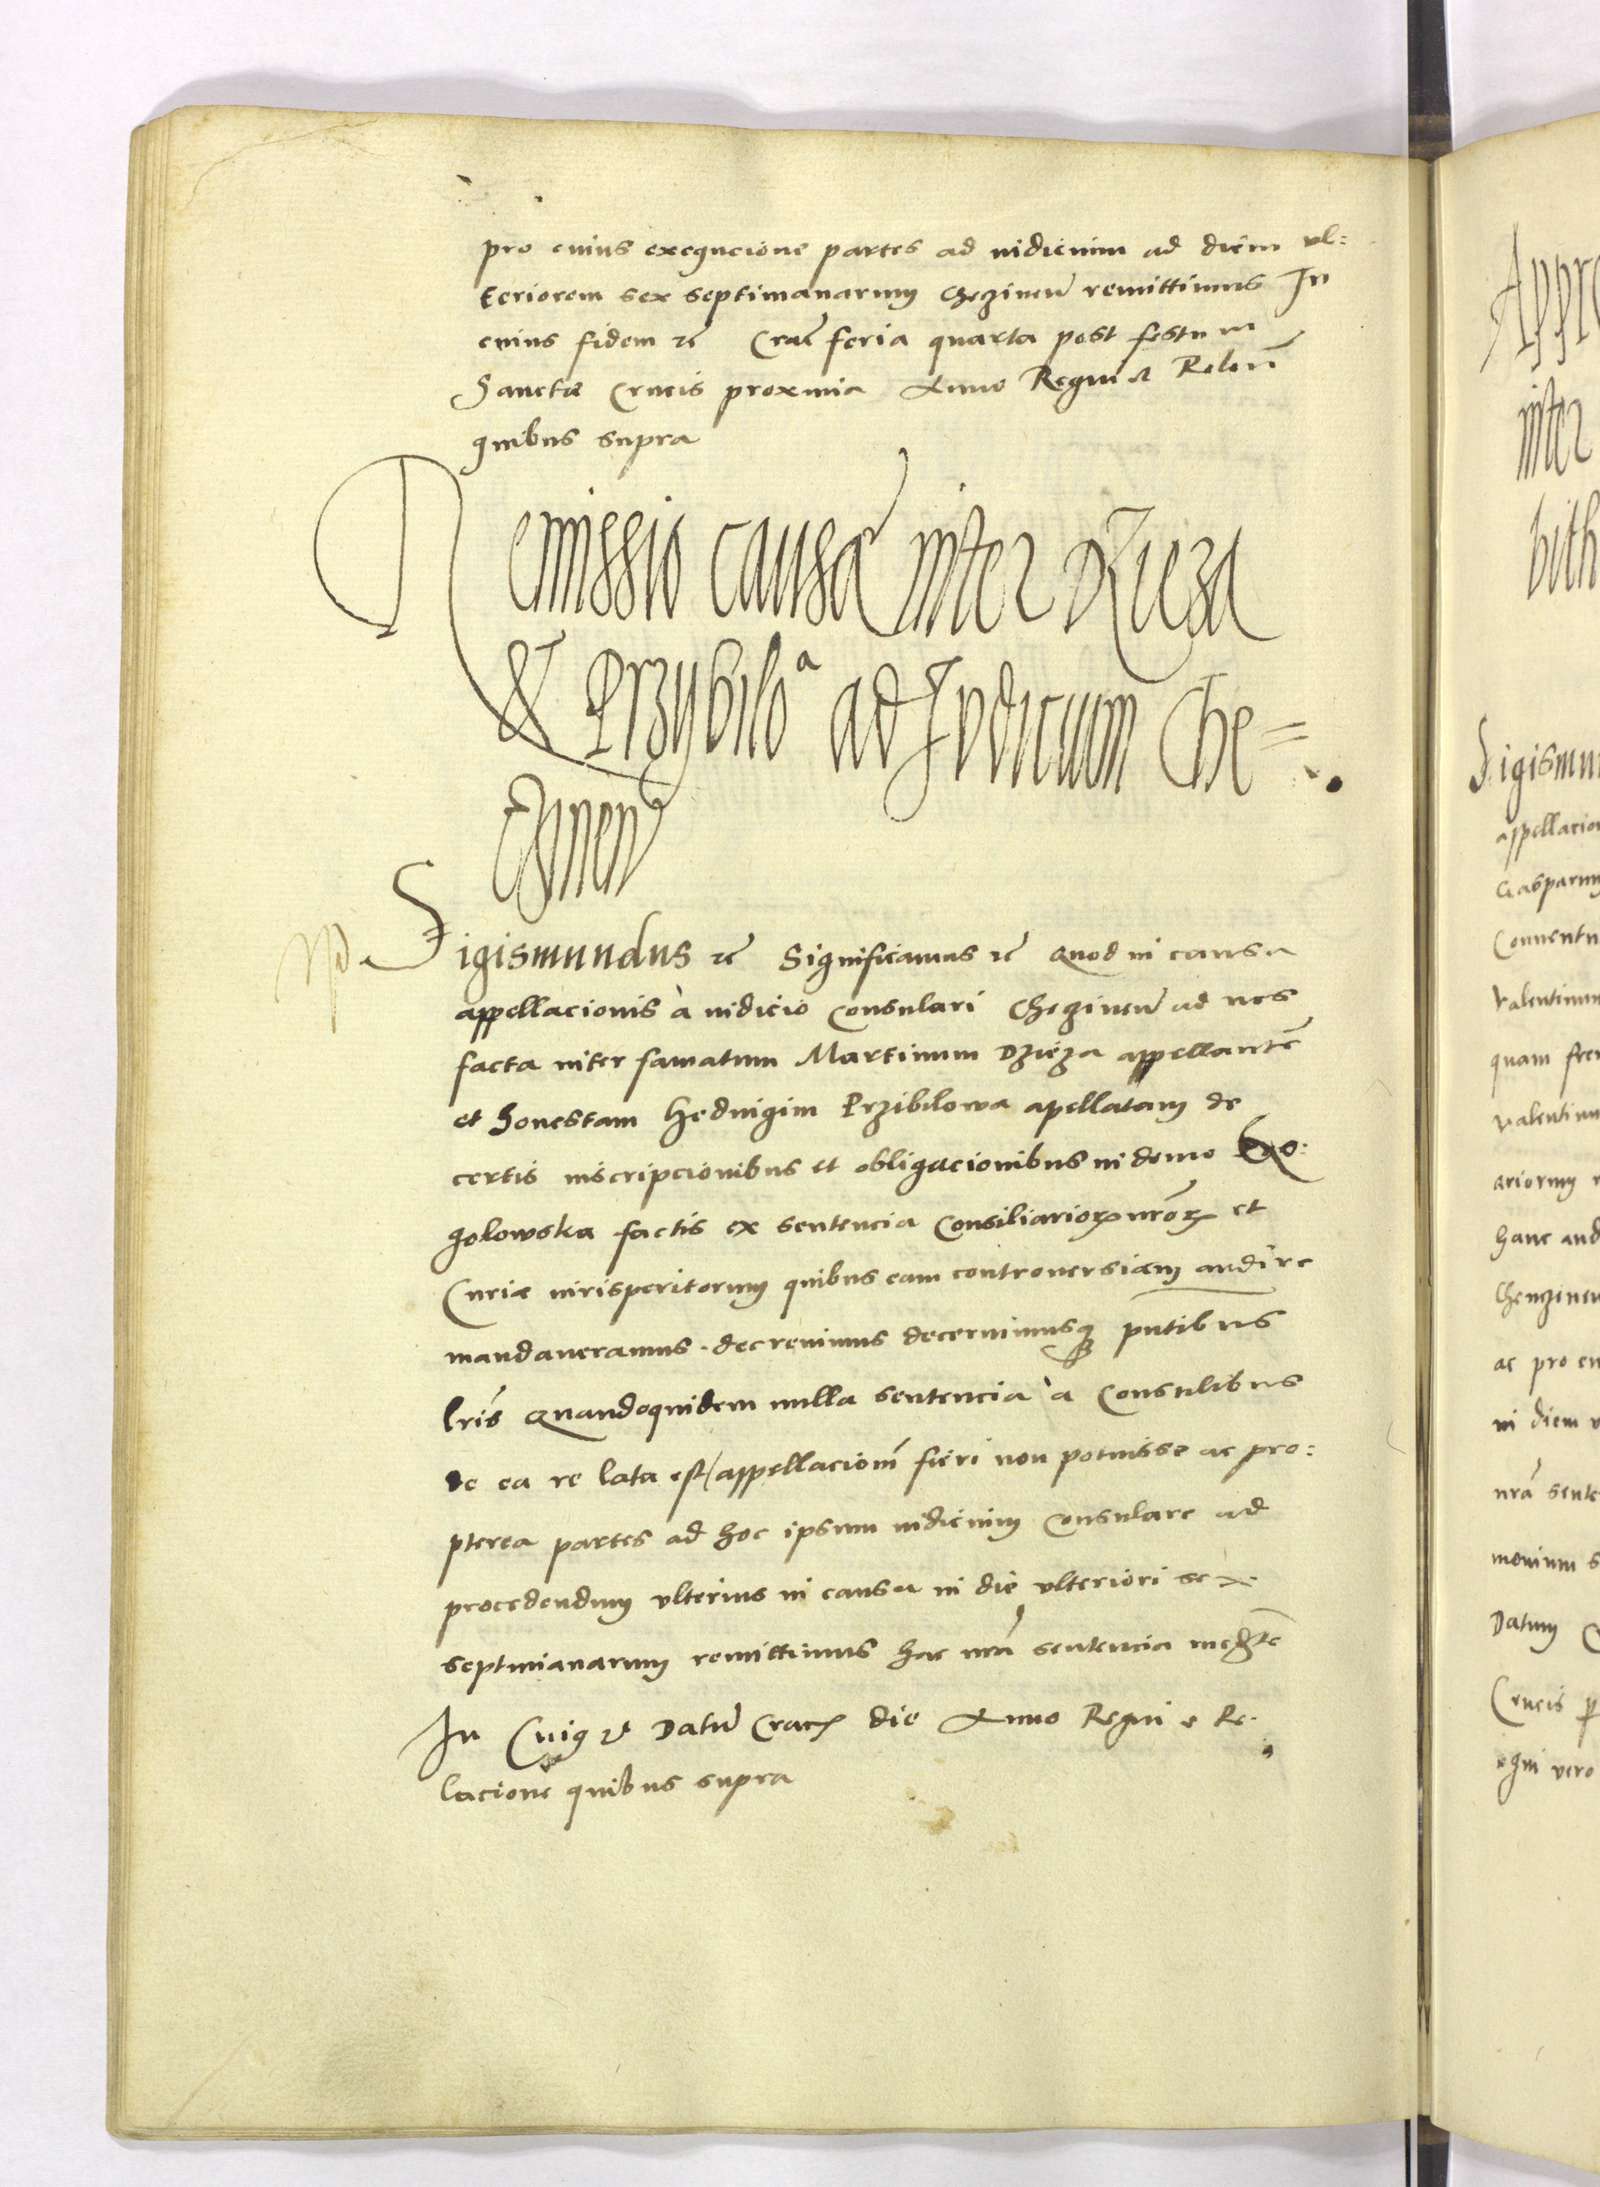 pro cuius exequcione partes ad iudicium ad diem vl=
teriorem sex septimanarum Chezinen̄ remittimus In
cuius fidem etc̄ Crac̄ feria quarta post festum
Sanctæ Crucis proxima Anno Regni et Relon̄
quibus supra
Remissio causæ inter Dzieza
& Przybiloᵃ ad Iudicium Che=
czinen̄
Sigismundus etc̄ Significamus etc̄ Quod in causa
appellacionis à iudicio Consulari Chezinen̄ ad nos
facta inter famatum Martinum Dzieza appellantē
et honestam Heduigim Przibilowa apellatam de
certis inscripcionibus et obligacionibus in domo
golowska factis ex sentencia Consiliarioꝝ nr̄oꝝ et
Curiæ iurisperitorum quibus eam controuersiam audire
mandaueramus. decreuimus decernimusqꝫ pn̄tibus
lr̄is Quandoquidem nulla sentencia à Consulibus
de ea re lata est, appellacionē fieri non potuisse ac pro:
pterea partes ad hoc ipsum iudicium Consulare ad
procedendum vlterius in causa in die vlteriori sex
septimanarum remittimus hac nr̄a sentencia medn̄te
In Cuiꝰ etc̄ Datum Crac̄ die Anno Regni et Re.
lacione quibus supra
Appro
inter
bith
Sigismun
appellacio
Casparum
Conuentu
Valentinum
quam
Valentinu
ariorum
hanc aud
Chenzinen
ac pro cu
in diem v
nr̄a sente
monium s
Datum
Crucis
egni vero